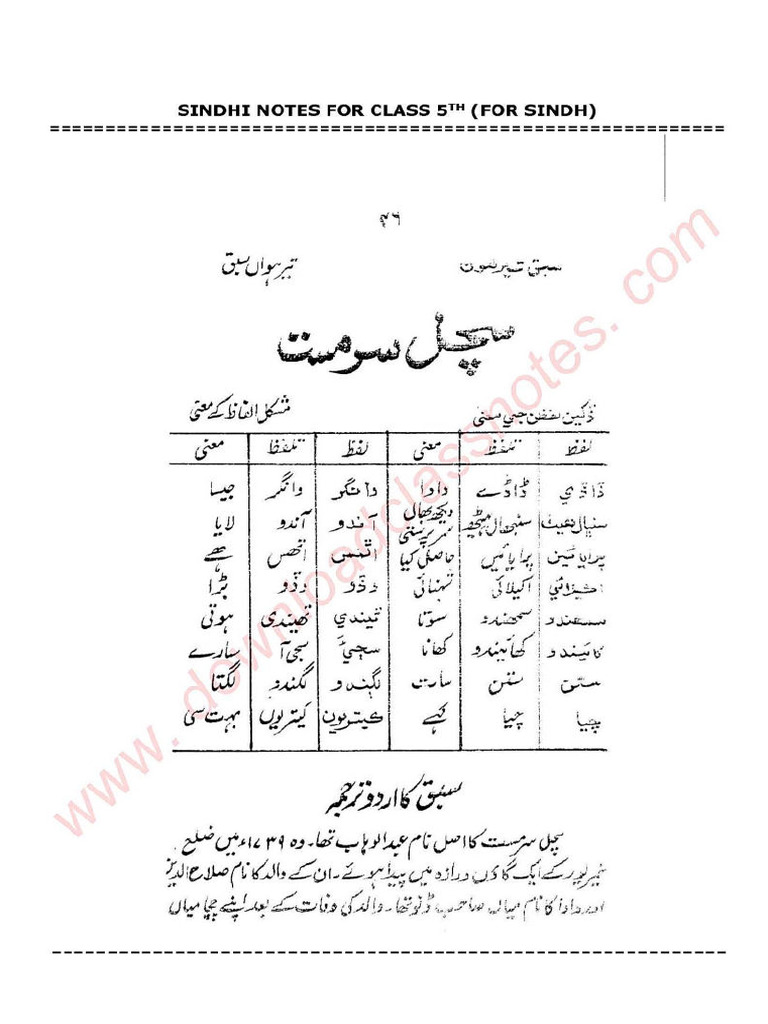 SINDHI NOTES FOR CLASS 5TH (FOR SINDH)
سبق تيرهون تیرہواں سبق
سچل سرمست
ڏکين لفظن جي معنيٰ مشکل الفاظ کے معنی
لفظ تلفظ معنی لفظ تلفظ معنی
ڏاڏي ڈاڈے دادا وانگر وانگر جیسا
سنڀال هيٺ سنبھال ہیٹھ دیکھ بھال سرپرستی آندو آندو لایا
پرايائين پرایائیں حاصل کیا اٿس اتھس ہے
اڪيلائي اکیلائی تنہائی وڏو وڈو بڑا
سمهندو سمھندو سوتا ٿيندي تھیندی ہوتی
کائيندو کھائیندو کھانا سڄيءَ سجی آ سارے
ستن ستن سات لڳندو لگندو لگتا
چيا چیا کہے ڪيتريون کیتریوں بہت سی
سبق کا اردو ترجمہ
سچل سرمست کا اصل نام عبدالوہاب تھا۔ وہ ۱۷۳۹ء میں ضلع
خیرپور کے ایک گاؤں درازہ میں پیدا ہوئے۔ ان کے والد کا نام صلاح الدین
اور دادا کا نام میاں صاحب ڈنو تھا۔ والد کی وفات کے بعد اپنے چچا میاں
www.downloadclassnotes.com